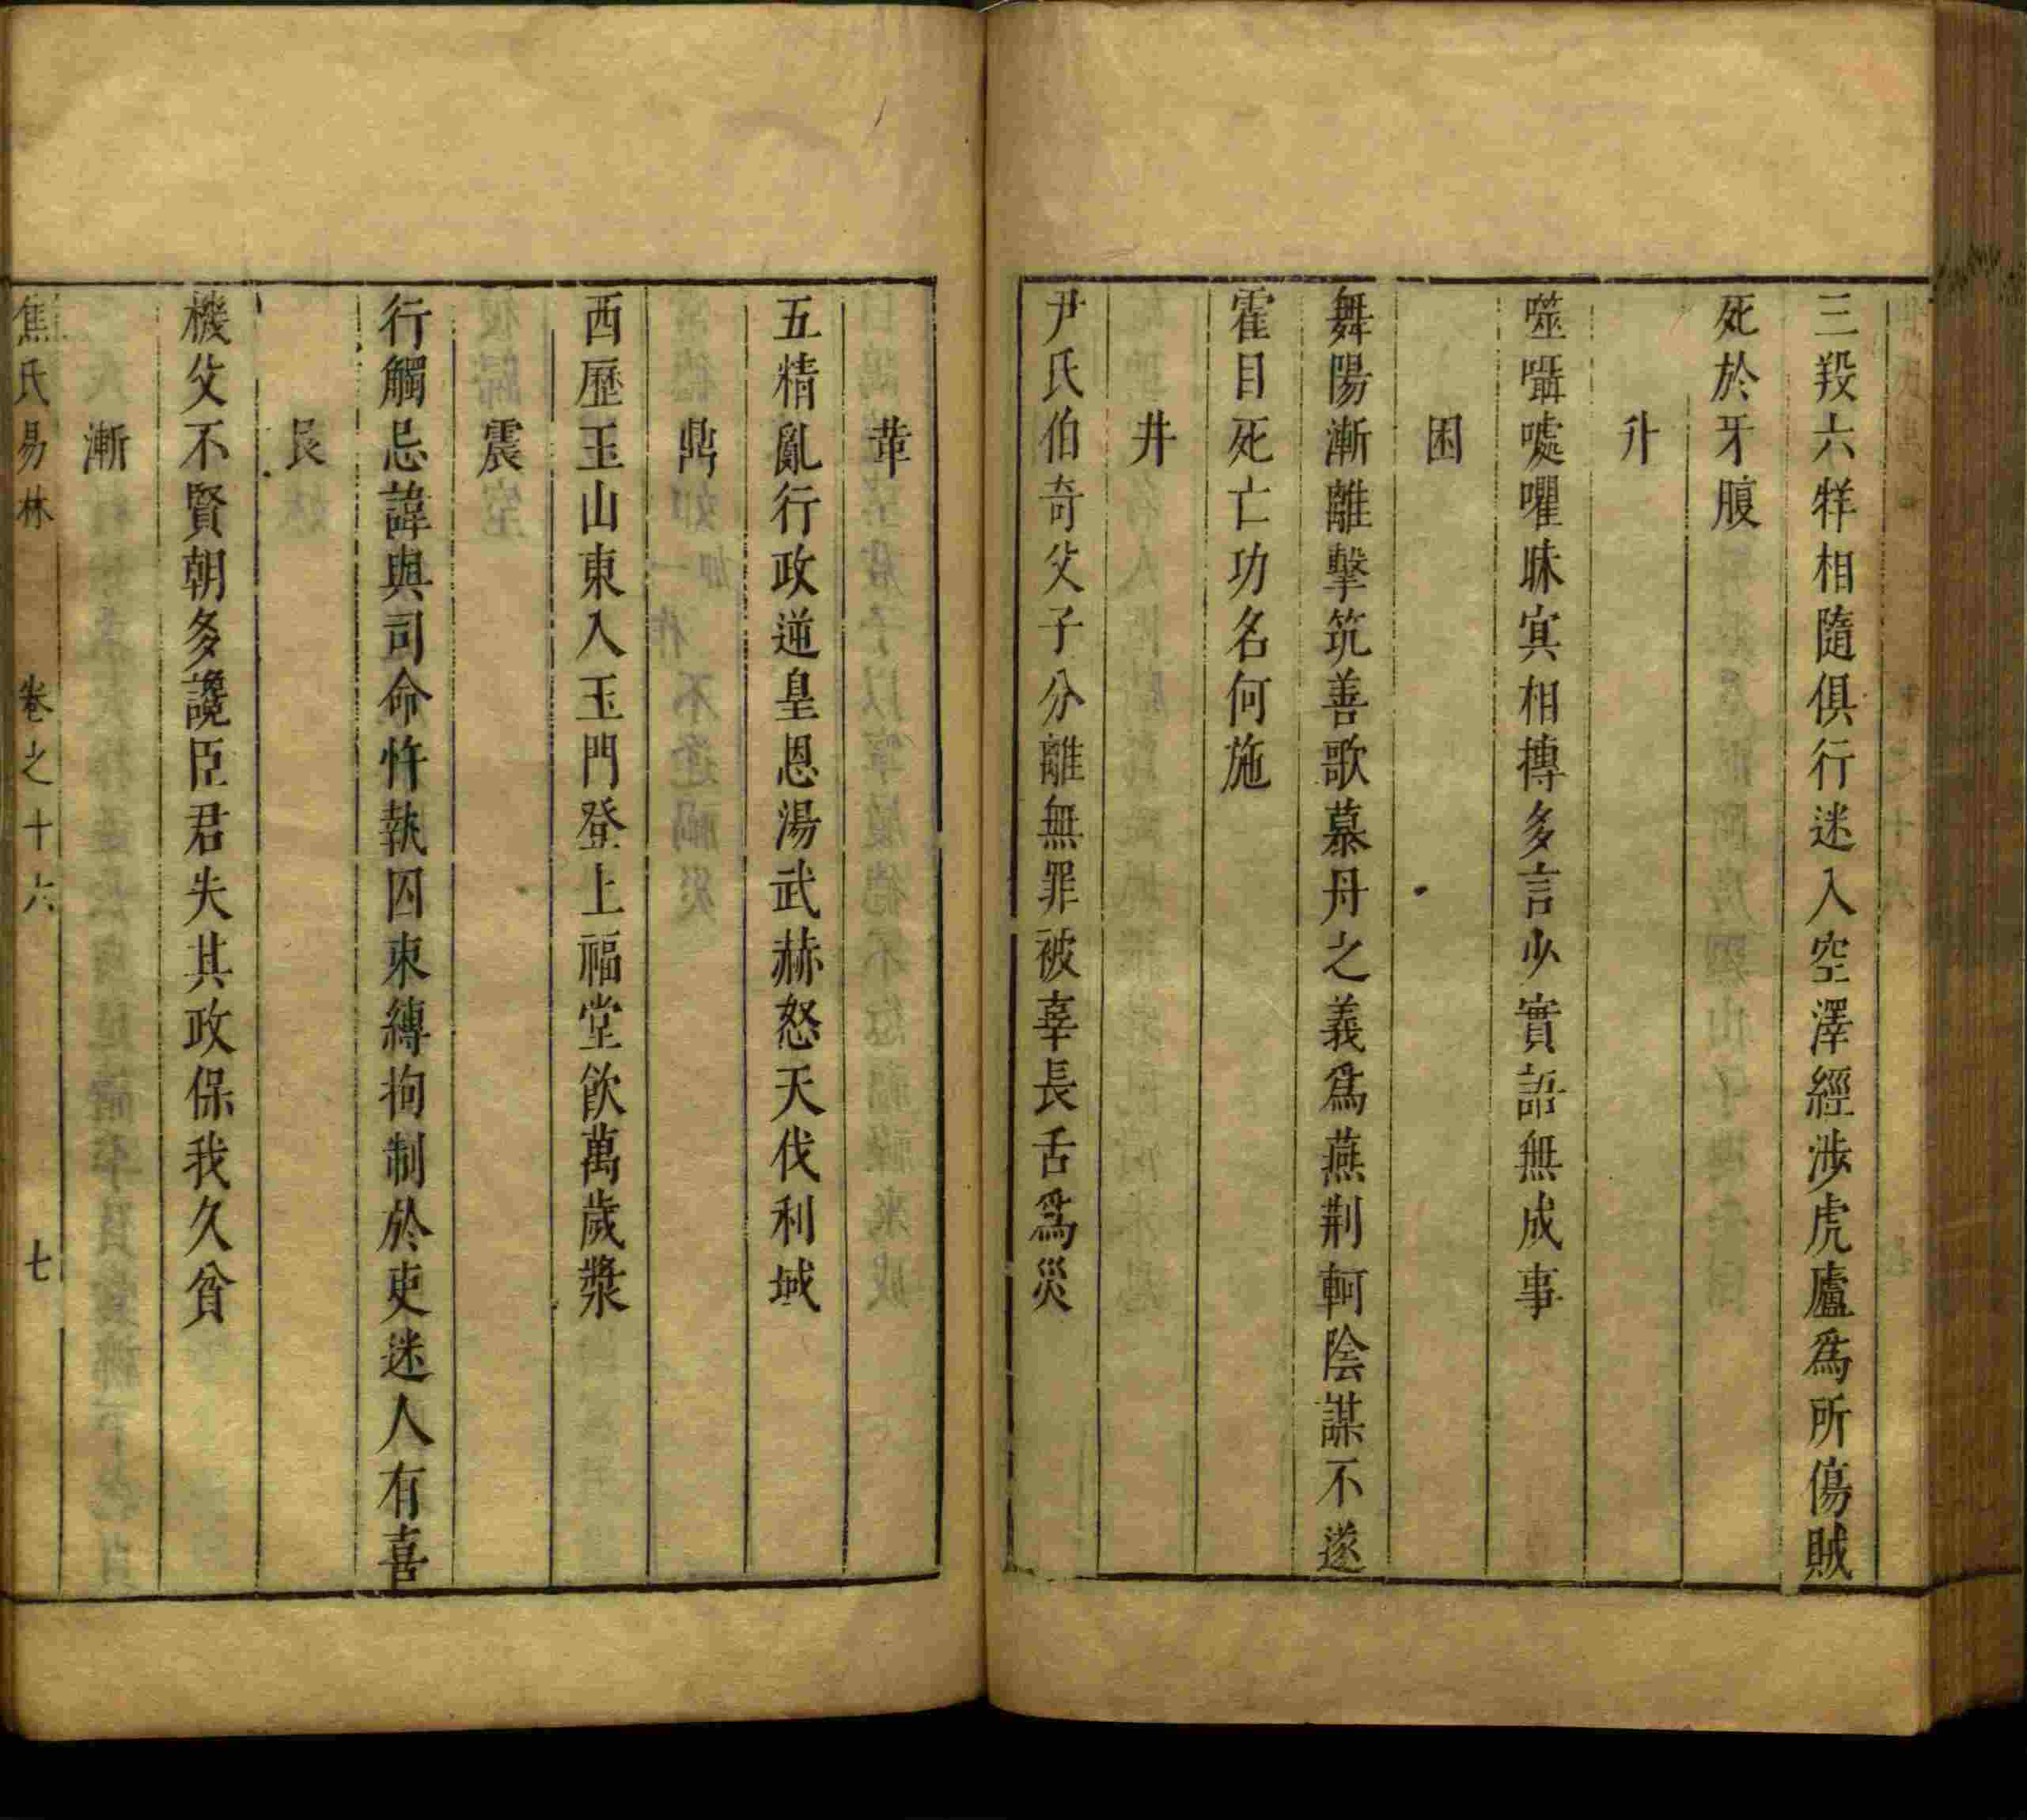 三羖六牂相隨俱行迷入空澤經涉虎廬爲所傷賊
死於牙腹
升
噬囁處懼昧㝠相摶多言少實語無成事
困
舞陽漸離擊筑善歌慕丹之義爲燕荆軻陰謀不遂
霍目死亡功名何施
井
尹氏伯奇父子分離無罪被辜長舌爲災
革
五精亂行政逆皇恩湯武赫怒天伐利域
鼎
西歷玉山東入玉門登上福堂飲萬歲漿
震
行觸忌諱與司命忤執囚束縛拘制於吏迷人有喜
艮
機父不賢朝多讒臣君失其政保我久貧
漸
焦氏易林 卷之十六 七